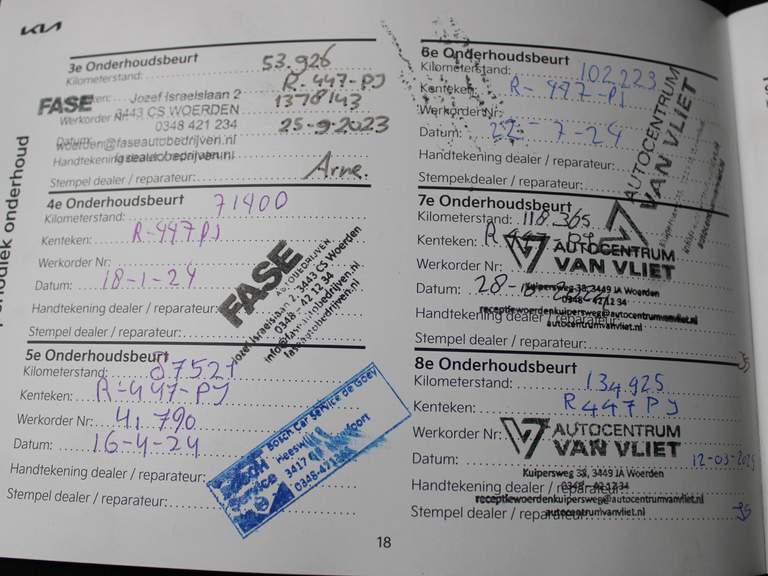 KIA
Periodiek onderhoud
3e Onderhoudsbeurt
Kilometerstand: 53.926
R-447-PJ
FASE Jozef Israelslaan 2
3443 CS WOERDEN
Werkorder Nr: 1378143
0348 421 234
Datum: 25-9-2023
woerden@faseautobedrijven.nl
Handtekening
faseautobedrijven.nl
Arne.
Stempel dealer / reparateur:
4e Onderhoudsbeurt
Kilometerstand: 71400
Kenteken: R-447PJ
Werkorder Nr:
Datum: 18-1-24
Handtekening dealer / reparateur:
Stempel dealer / reparateur:
FASE
AUTOBEDRIJVEN
Jozef Israelslaan 2, 3443 CS Woerden
0348 - 42 12 34
info@faseautobedrijven.nl
faseautobedrijven.nl
5e Onderhoudsbeurt
Kilometerstand: 87521
Kenteken: R-447-PJ
Werkorder Nr: 41.790
Datum: 16-4-24
Handtekening dealer / reparateur:
Stempel dealer / reparateur:
Bosch Car Service de Goey
Service
3417
0348-47
6e Onderhoudsbeurt
Kilometerstand: 102.223
Kenteken: R-447-PJ
Werkorder Nr:
Datum: 22-7-24
Handtekening dealer / reparateur:
Stempel dealer / reparateur:
AUTOCENTRUM
VAN VLIET
7e Onderhoudsbeurt
Kilometerstand: 118.365
Kenteken: R
AUTOCENTRUM
Werkorder Nr:
VAN VLIET
Datum: 28-
Kuipersweg 38, 3449 JA Woerden
0348 - 42 12 34
Handtekening dealer / reparateur:
receptiewoerdenkuipersweg@autocentrumvanvliet.nl
autocentrumvanvliet.nl
Stempel dealer / reparateur:
8e Onderhoudsbeurt
Kilometerstand: 134.925
Kenteken: R447PJ
Werkorder Nr:
AUTOCENTRUM
VAN VLIET
Datum: 12-03-2025
Kuipersweg 38, 3449 JA Woerden
0348 - 42 12 34
Handtekening dealer / reparateur:
receptiewoerdenkuipersweg@autocentrumvanvliet.nl
Stempel dealer / reparateur:
autocentrumvanvliet.nl
18